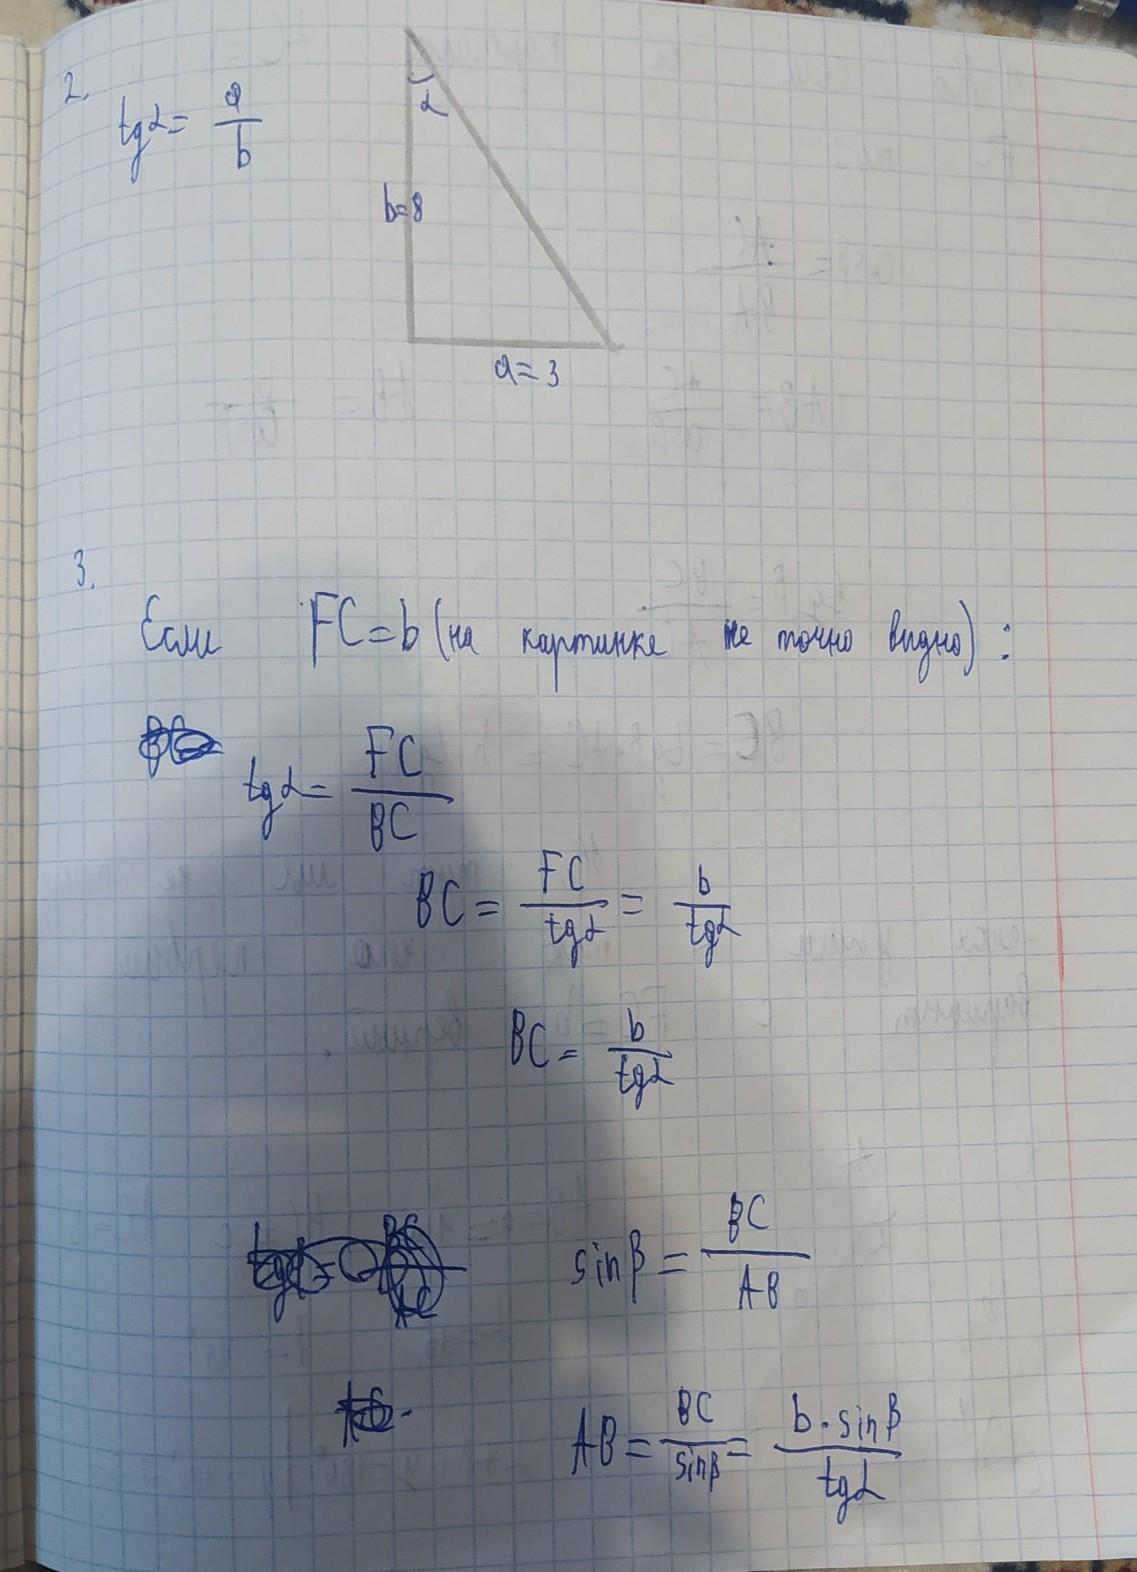 2.
tgα = a/b
α
b=8
a=3
3.
Если FC=b (на картинке не точно видно):
tgα = FC/BC
BC = FC/tgα = b/tgα
BC = b/tgα
sinβ = BC/AB
AB = BC/sinβ = b·sinβ/tgα